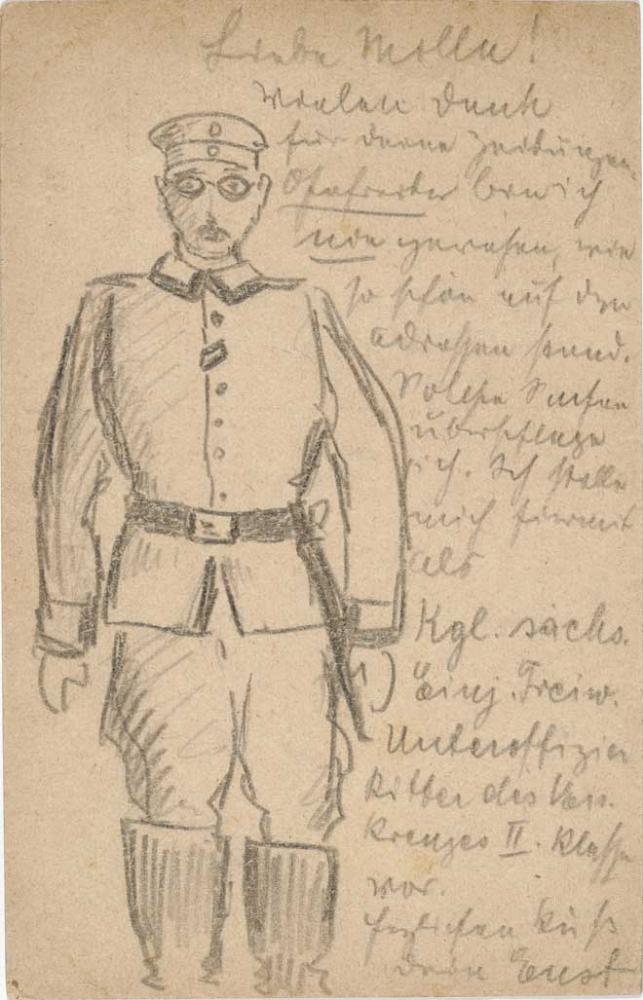 Liebe Molla!
Vielen Dank
für deine Zeitungen.
Gefreiter bin ich
nie gewesen, wie
so schön auf den
Adressen stand.
Solche Stufen
überspringe
ich. Ich stelle
mich hiermit
als
Kgl. sächs.
Einj. Freiw.
Unteroffizier
Ritter des Eis.
Kreuzes II. Klasse
vor.
Herzlichen Kuß
dein Ernst